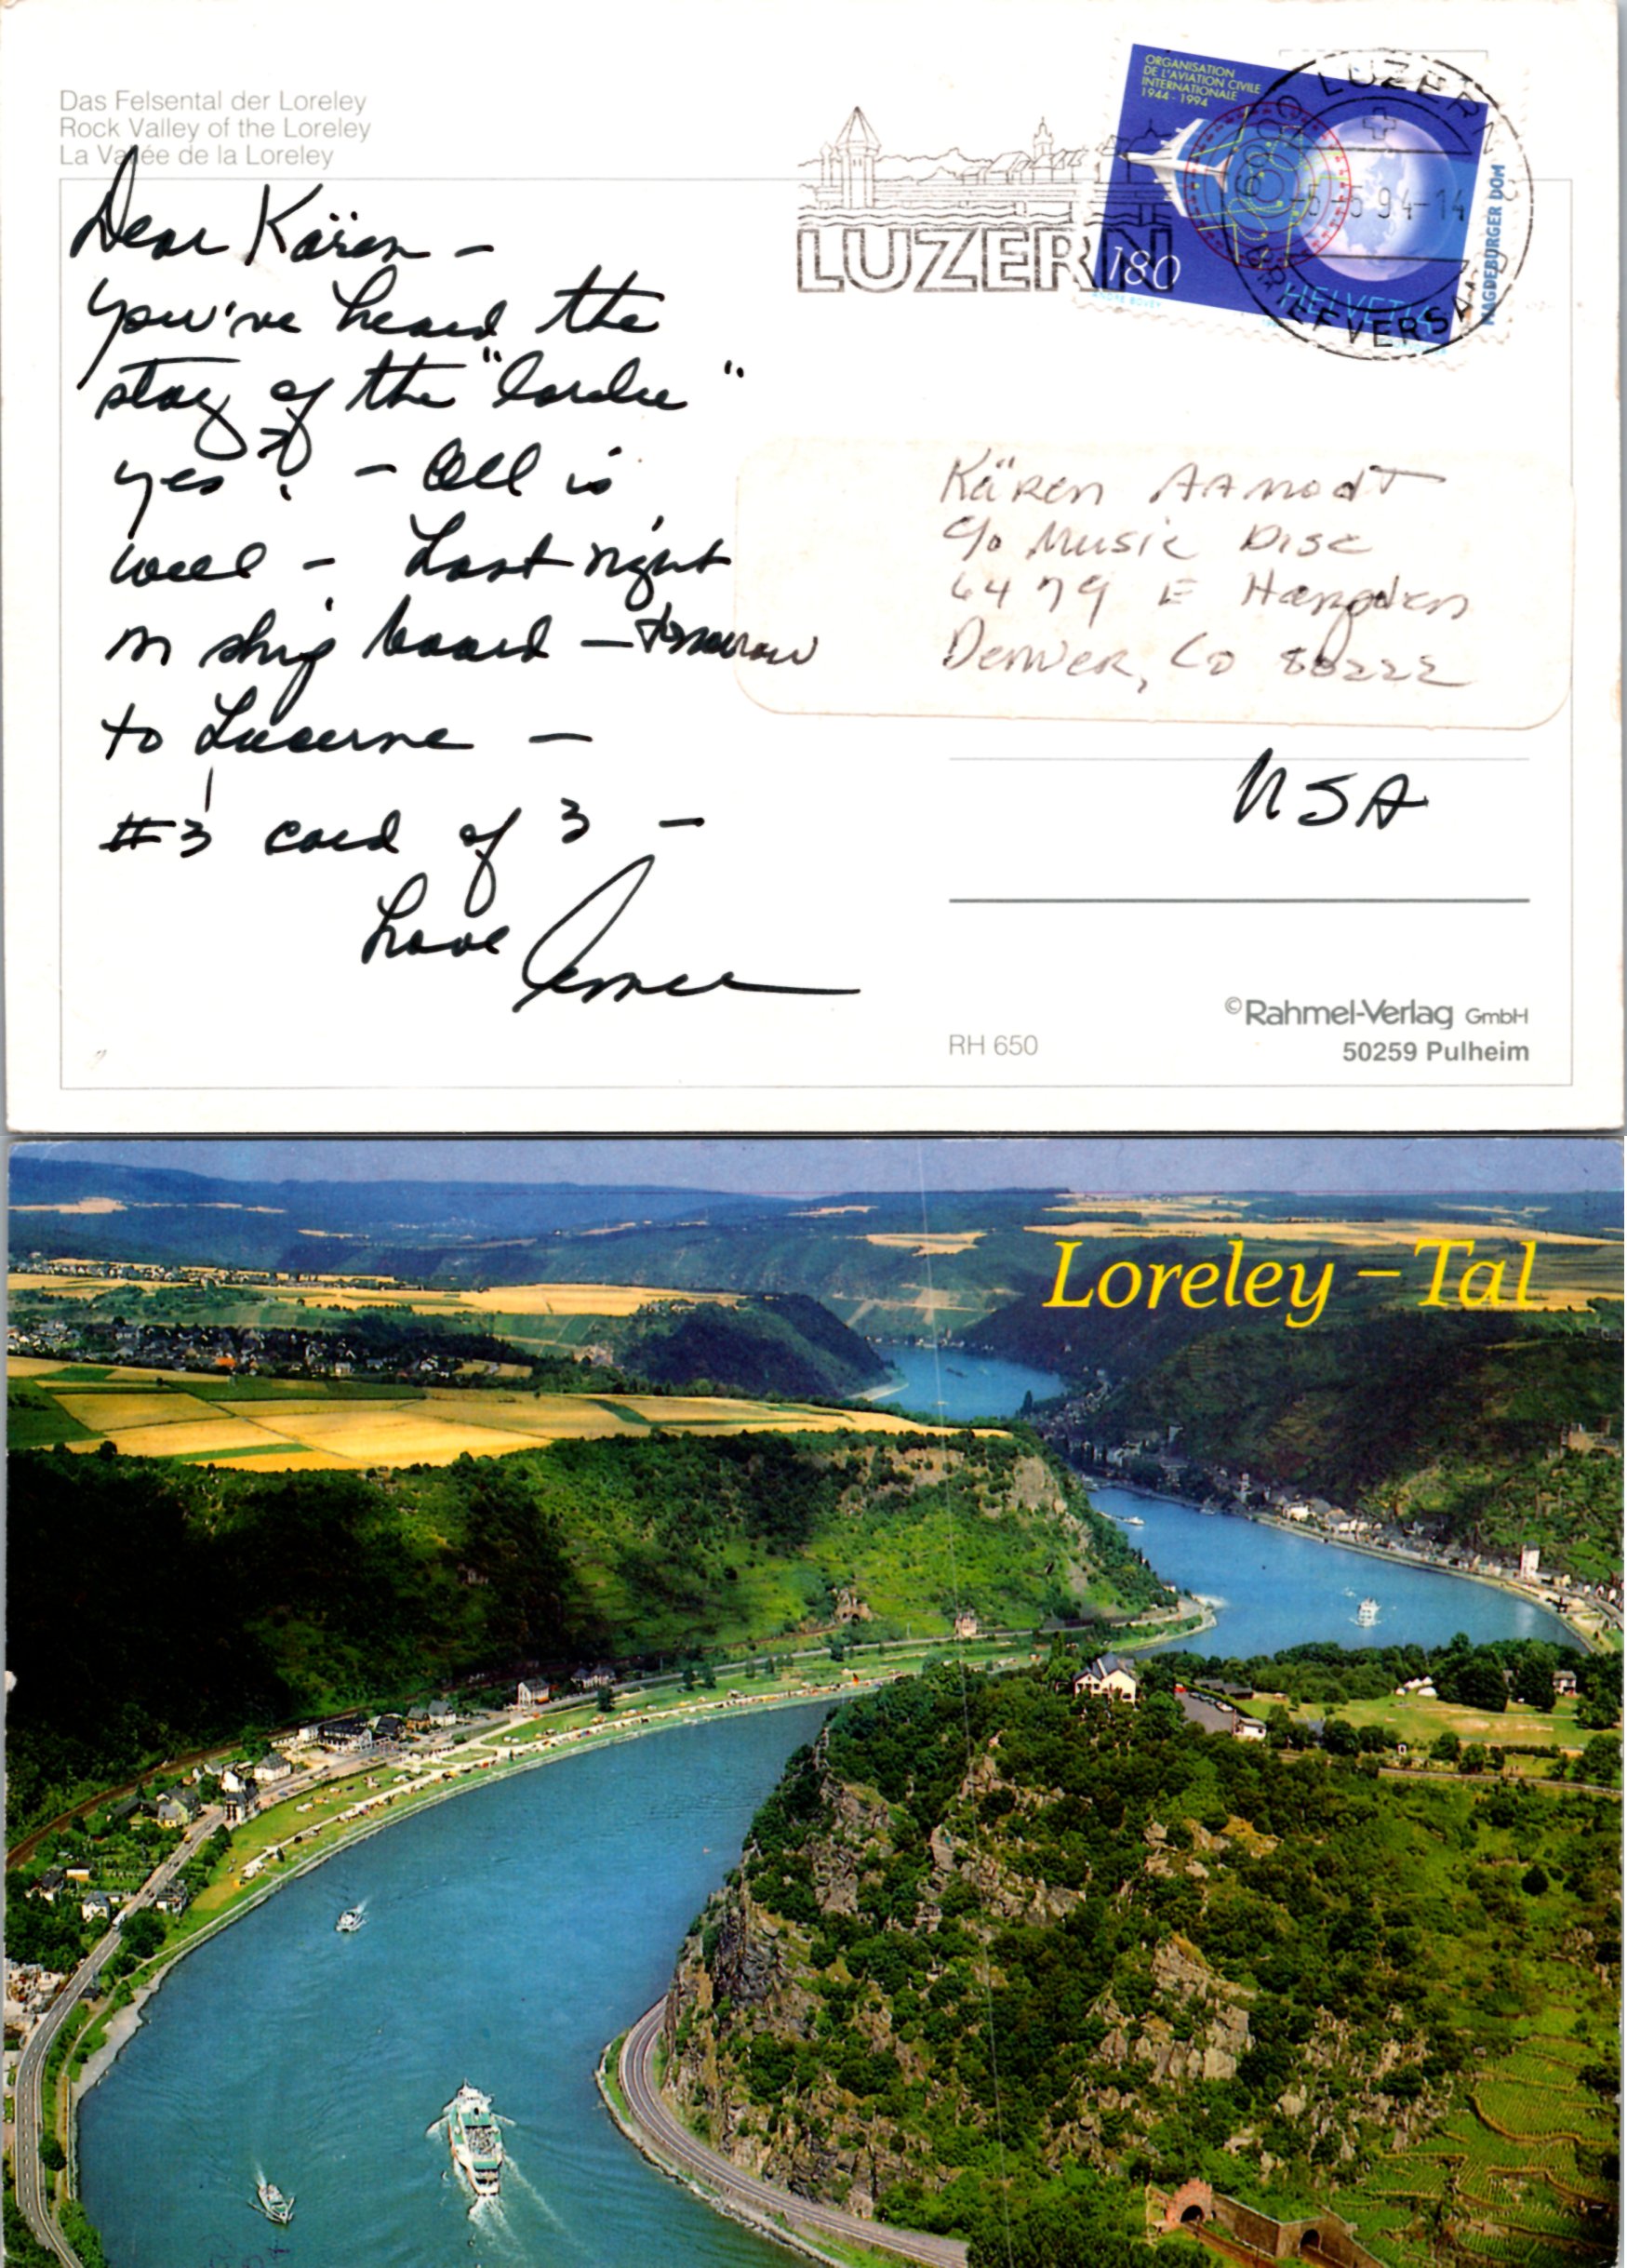 Das Felsental der Loreley
Rock Valley of the Loreley
La Vallée de la Loreley
Dear Kären –
you've heard the
story of the "lorelie"
yes? – All is
well – Last night
on ship board – tomorrow
to Lucerne –
#3 card of 3 –
Love
LUZERN
ORGANISATION
DE L'AVIATION CIVILE
INTERNATIONALE
1944 - 1994
180
HELVETIA
ANDRE BOVEY
6000 LUZERN
-5-5 94-14
BRIEFVERSAND
MAGDEBURGER DOM
Kären Aamodt
c/o Music Disc
6479 E Hampden
Denver, Co 80222
USA
RH 650
©Rahmel-Verlag GmbH
50259 Pulheim
Loreley – Tal